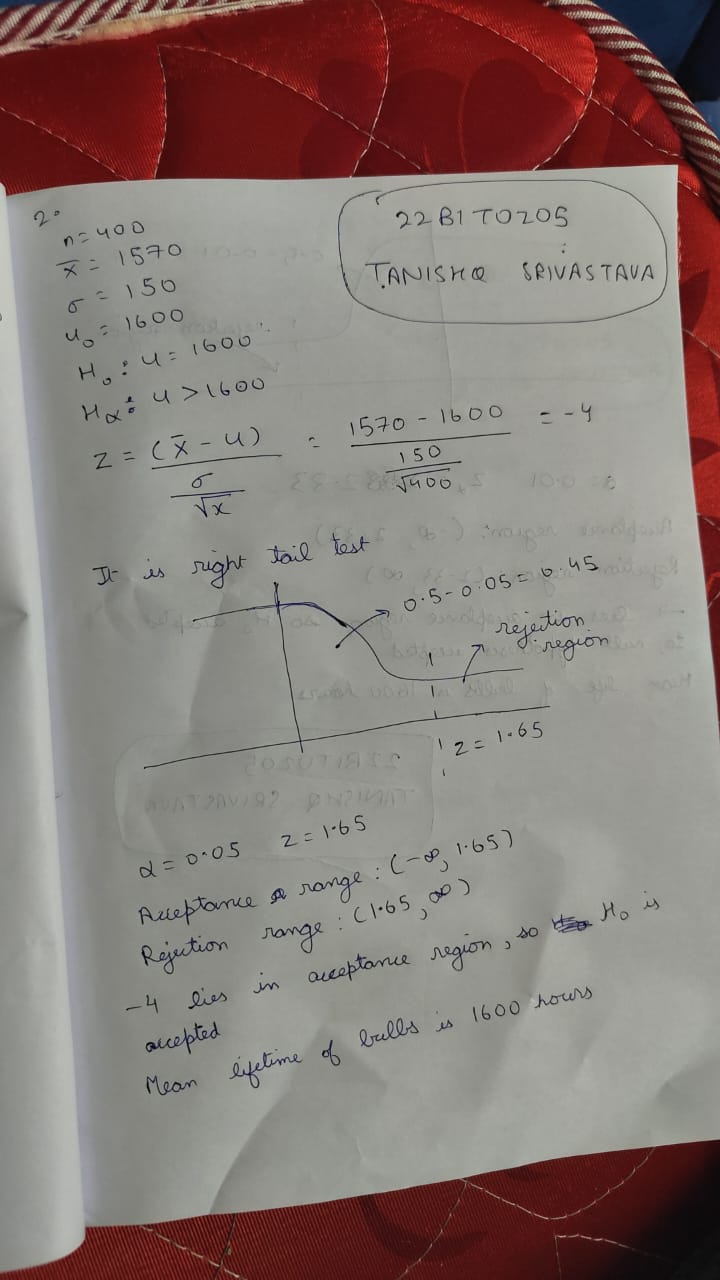 22BIT0205
:
TANISHQ SRIVASTAVA
2.
n = 400
x̄ = 1570
σ = 150
u₀ = 1600
H₀ : u = 1600
Hα : u > 1600
z = (x̄ - u) / (σ / √x) = (1570 - 1600) / (150 / √400) = -4
It is right tail test
0.5 - 0.05 = 0.45
rejection
region
z = 1.65
α = 0.05 z = 1.65
Acceptance range : (-∞, 1.65)
Rejection range : (1.65, ∞)
-4 lies in acceptance region, so H₀ is
accepted
Mean lifetime of bulbs is 1600 hours